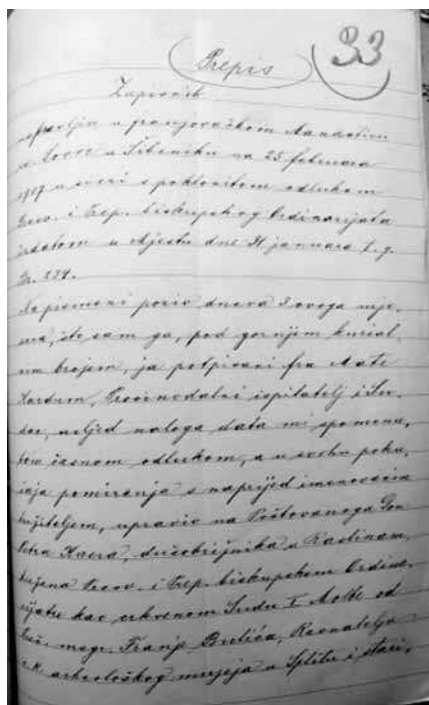 33
Prepis
Zapisnik
u franjevačkom Samostanu
sv. Lovre u Šibeniku na 25 februara
1907 u svezi s poklovitom odlukom
Presv. i Prep. biskupskog Ordinarijata
izdatom u Mjestu dne 31 januara t. g.
Br. 234.
Na pismeni poziv dneva 3 ovoga mje-
seca, što sam ga, pod gornjem kurial-
nim brojem, ja potpisani fra Mate
Prosinodalni ispitatelj i Su-
dac, usljed naloga data mi spomenu-
tom časnom odlukom, a u svrhu poku-
šaja pomirenja s naprijed imenovanim
tužiteljem, upravio na Poštovanoga Don
Petra Kaera, dušobrižnika u Raslinam,
tužena Presv. i Prep. biskupskom Ordina-
rijatu kao crkvenom Sudu I Molbe od
msgr. Franje Bulića, Ravnatelja
c.k. arheološkog muzeja u Splitu i stari-